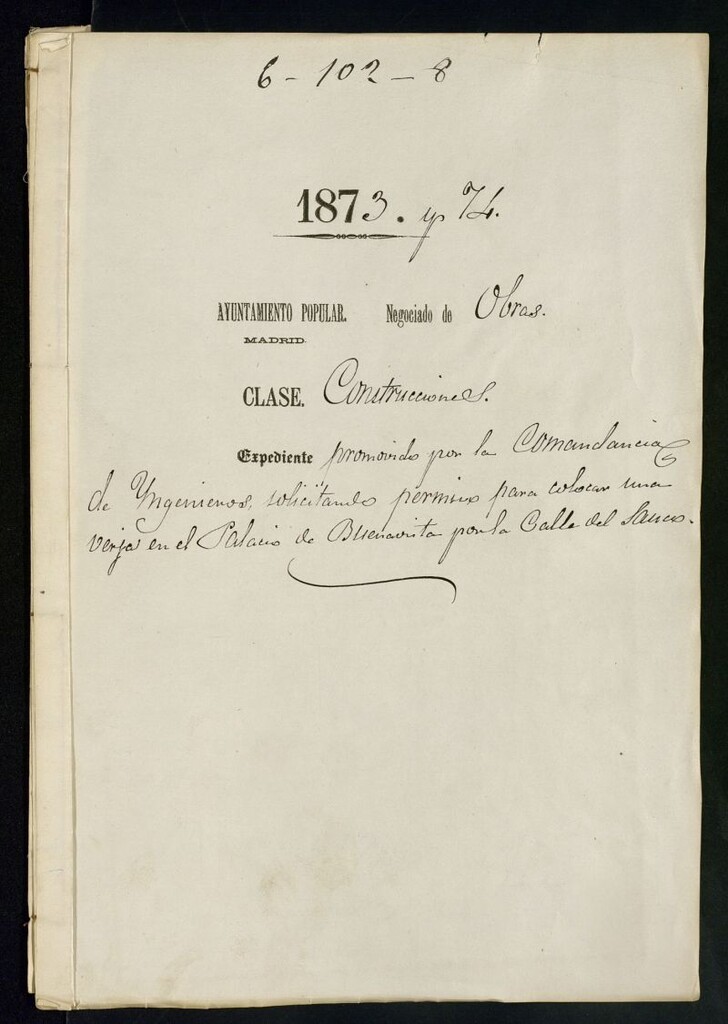 6 - 102 - 8
1873. y 74.
AYUNTAMIENTO POPULAR. Negociado de Obras.
MADRID.
CLASE. Construcciones.
Expediente promovido por la Comandancia
de Yngenieros, solicitando permiso para colocar una
verja en el Palacio de Buenavista por la Calle del Sauco.